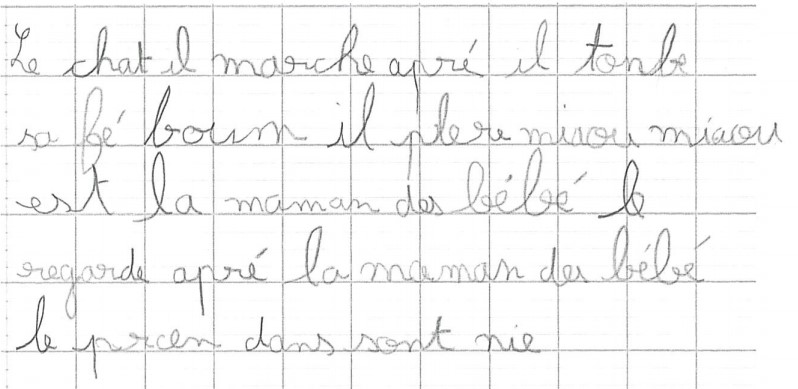 Le chat il marche apré il tonbe
sa fé boum il plere miaou miaou
est la maman des bébé le
regarde apré la maman des bébé
le prcen dans sont nie